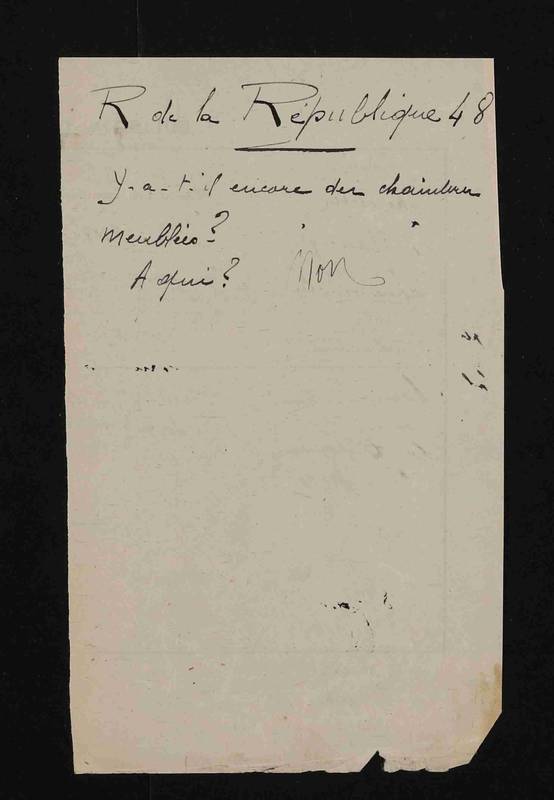 R de la République 48
Y-a-t-il encore des chambres
meublées?
A qui? Non